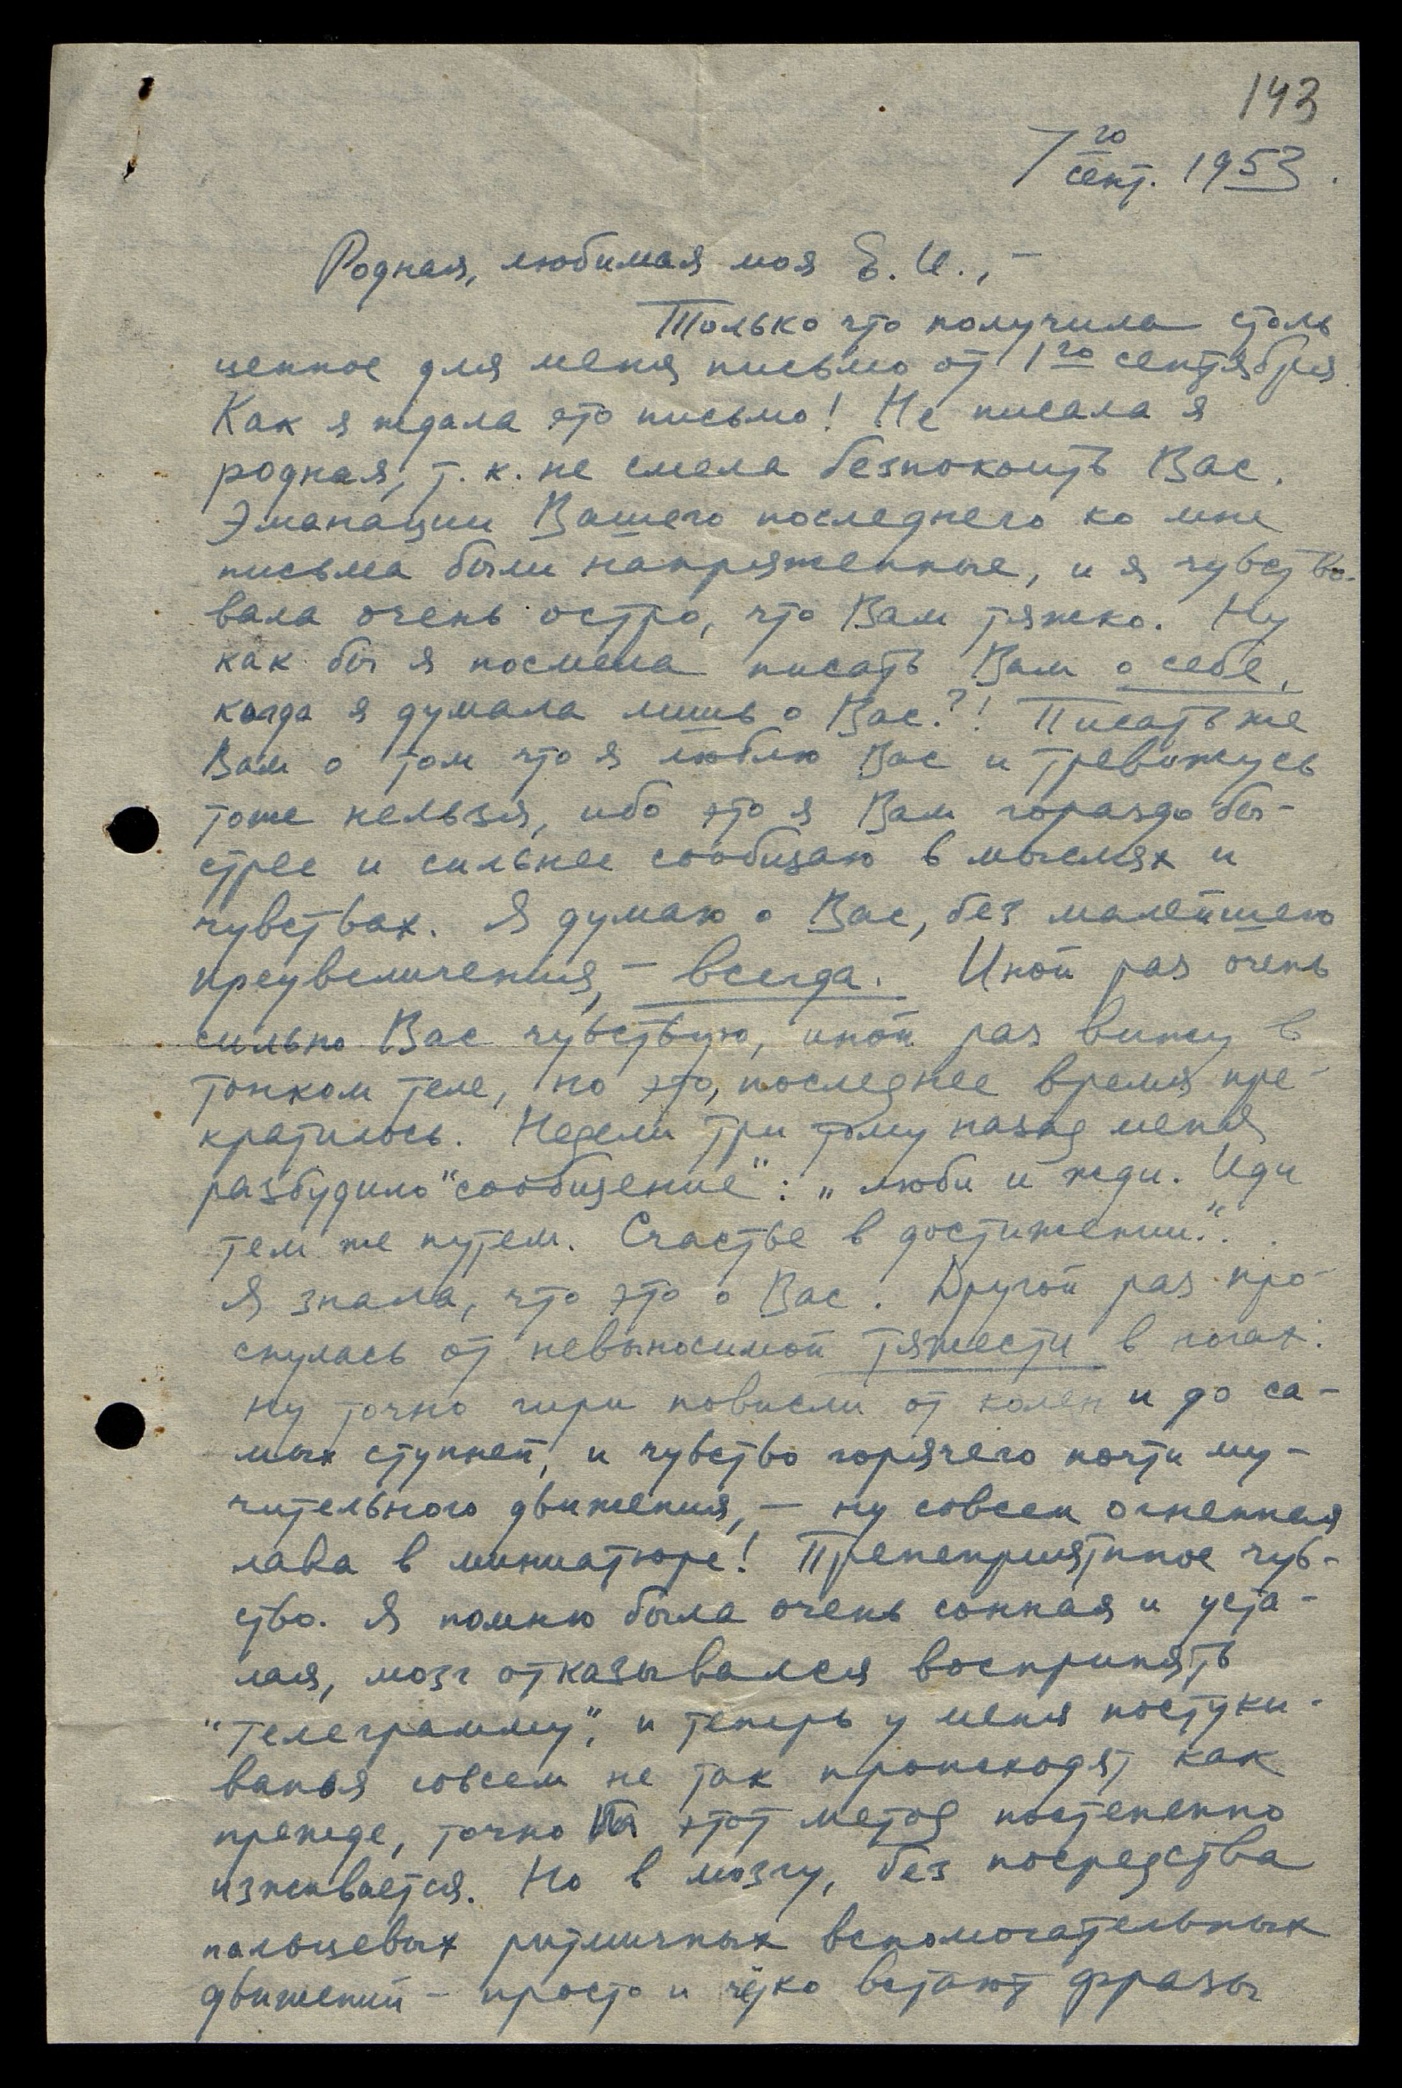 143
7го сент. 1953.
Родная, любимая моя Е. И., –
Только что получила столь
ценное для меня письмо от 1го сентября.
Как я ждала это письмо! Не писала я
родная, т. к. не смела безпокоить Вас.
Эманации Вашего последнего ко мне
письма были напряженные, и я чувство-
вала очень остро, что Вам тяжко. Ну
как бы я посмела писать Вам о себе,
когда я думала лишь о Вас?! Писать же
Вам о том что я люблю Вас и тревожусь
тоже нельзя, ибо это я Вам гораздо бы-
стрее и сильнее сообщаю в мыслях и
чувствах. Я думаю о Вас, без малейшего
преувеличения, – всегда. Иной раз очень
сильно Вас чувствую, иной раз вижу в
тонком теле, но это, последнее время пре-
кратилось. Недели три тому назад меня
разбудило "сообщение": „люби и жди. Иди
тем же путем. Счастье в достижении.“.
Я знала, что это о Вас. Другой раз про-
снулась от невыносимой тяжести в ногах:
ну точно гири повисли от колен и до са-
мых ступней, и чувство горячего почти му-
чительного движения, – ну совсем огненная
лава в миниатюре! Пренеприятное чув-
ство. Я помню была очень сонная и уста-
лая, мозг отказывался воспринять
"телеграмму", и теперь у меня постуки-
ванья совсем не так происходят, как
прежде, точно этот метод постепенно
изживается. Но в мозгу, без посредства
пальцевых ритмичных вспомогательных
движений – просто и чётко встают фразы